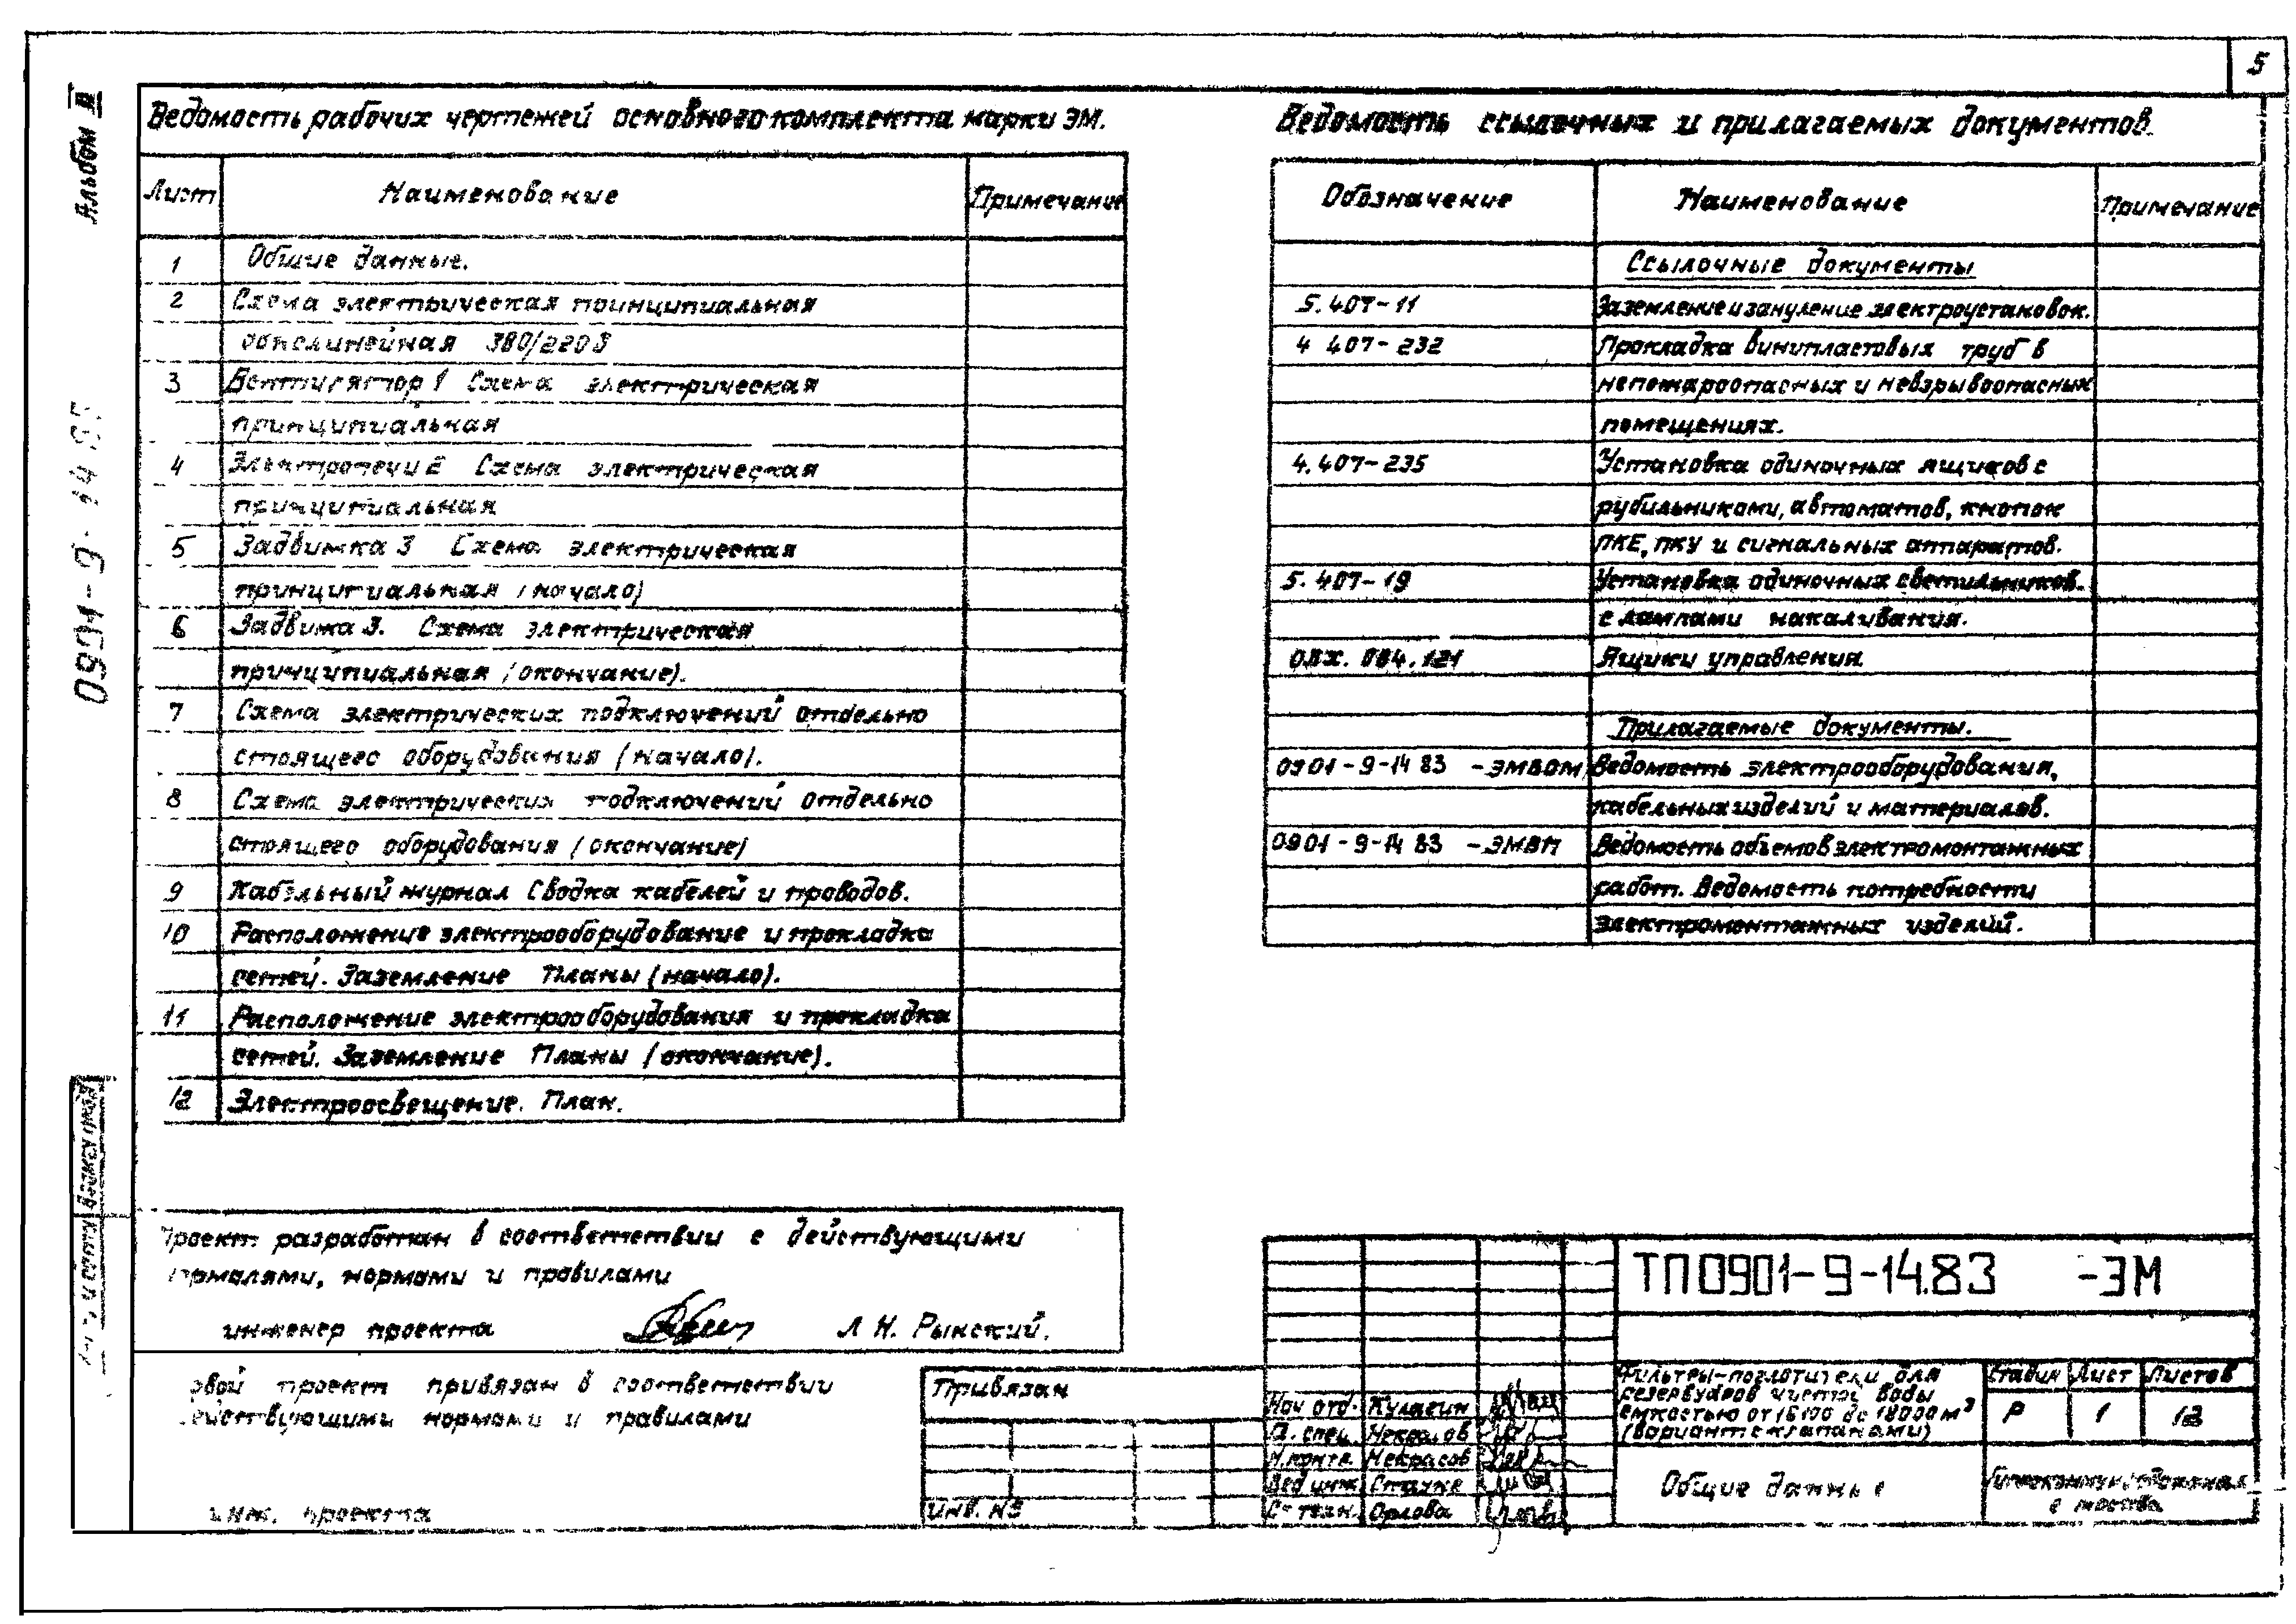 5
Альбом II
0901-9-14.83
Ведомость рабочих чертежей основного комплекта марки ЭМ.
Лист Наименование Примечание
1 Общие данные.
2 Схема электрическая принципиальная
однолинейная 380/220В
3 Вентилятор 1 Схема электрическая
принципиальная
4 Электропечи 2 Схема электрическая
принципиальная
5 Задвижка 3 Схема электрическая
принципиальная (начало)
6 Задвижа 3. Схема электрическая
принципиальная (окончание).
7 Схема электрических подключений отдельно
стоящего оборудования (начало).
8 Схема электрических подключений отдельно
стоящего оборудования (окончание)
9 Кабельный журнал Сводка кабелей и проводов.
10 Расположение электрооборудование и прокладка
сетей. Заземление Планы (начало).
11 Расположение электрооборудования и прокладка
сетей. Заземление Планы (окончание).
12 Электроосвещение. План.
Ведомость ссылочных и прилагаемых документов.
Обозначение Наименование Примечание
Ссылочные документы
5.407-11 Заземление и зануление электроустановок.
4 407-232 Прокладка винипластовых труб в
непожароопасных и невзрывоопасных
помещениях.
4.407-235 Установка одиночных ящиков с
рубильниками, автоматов, кнопок
ПКЕ, ПКУ и сигнальных аппаратов.
5.407-19 Установка одиночных светильников.
с лампами накаливания.
ОЛХ. 084.121 Ящики управления.
Прилагаемые документы.
0901-9-14 83 -ЭМВОМ Ведомость электрооборудования,
кабельных изделий и материалов.
0901-9-14 83 -ЭМВП Ведомость объемов электромонтажных
работ. Ведомость потребности
электромонтажных изделий.
Проект разработан в соответствии с действующими
нормами и правилами
инженер проекта Л Н. Рынский.
проект привязан в соответствии
действующими нормами и правилами
инж. проекта
Привязан
Инв. №
Нач отд. Кулагин
Гл. спец. Некрасов
Н.контр. Некрасов
Вед инж
Ст техн. Орлова
ТП 0901-9-14.83 -ЭМ
Фильтры-поглотители для
резервуаров чистой воды
емкостью от 16100 до 18000 м³
(вариант с клапанами)
Стадия Лист Листов
Р 1 12
Общие данные